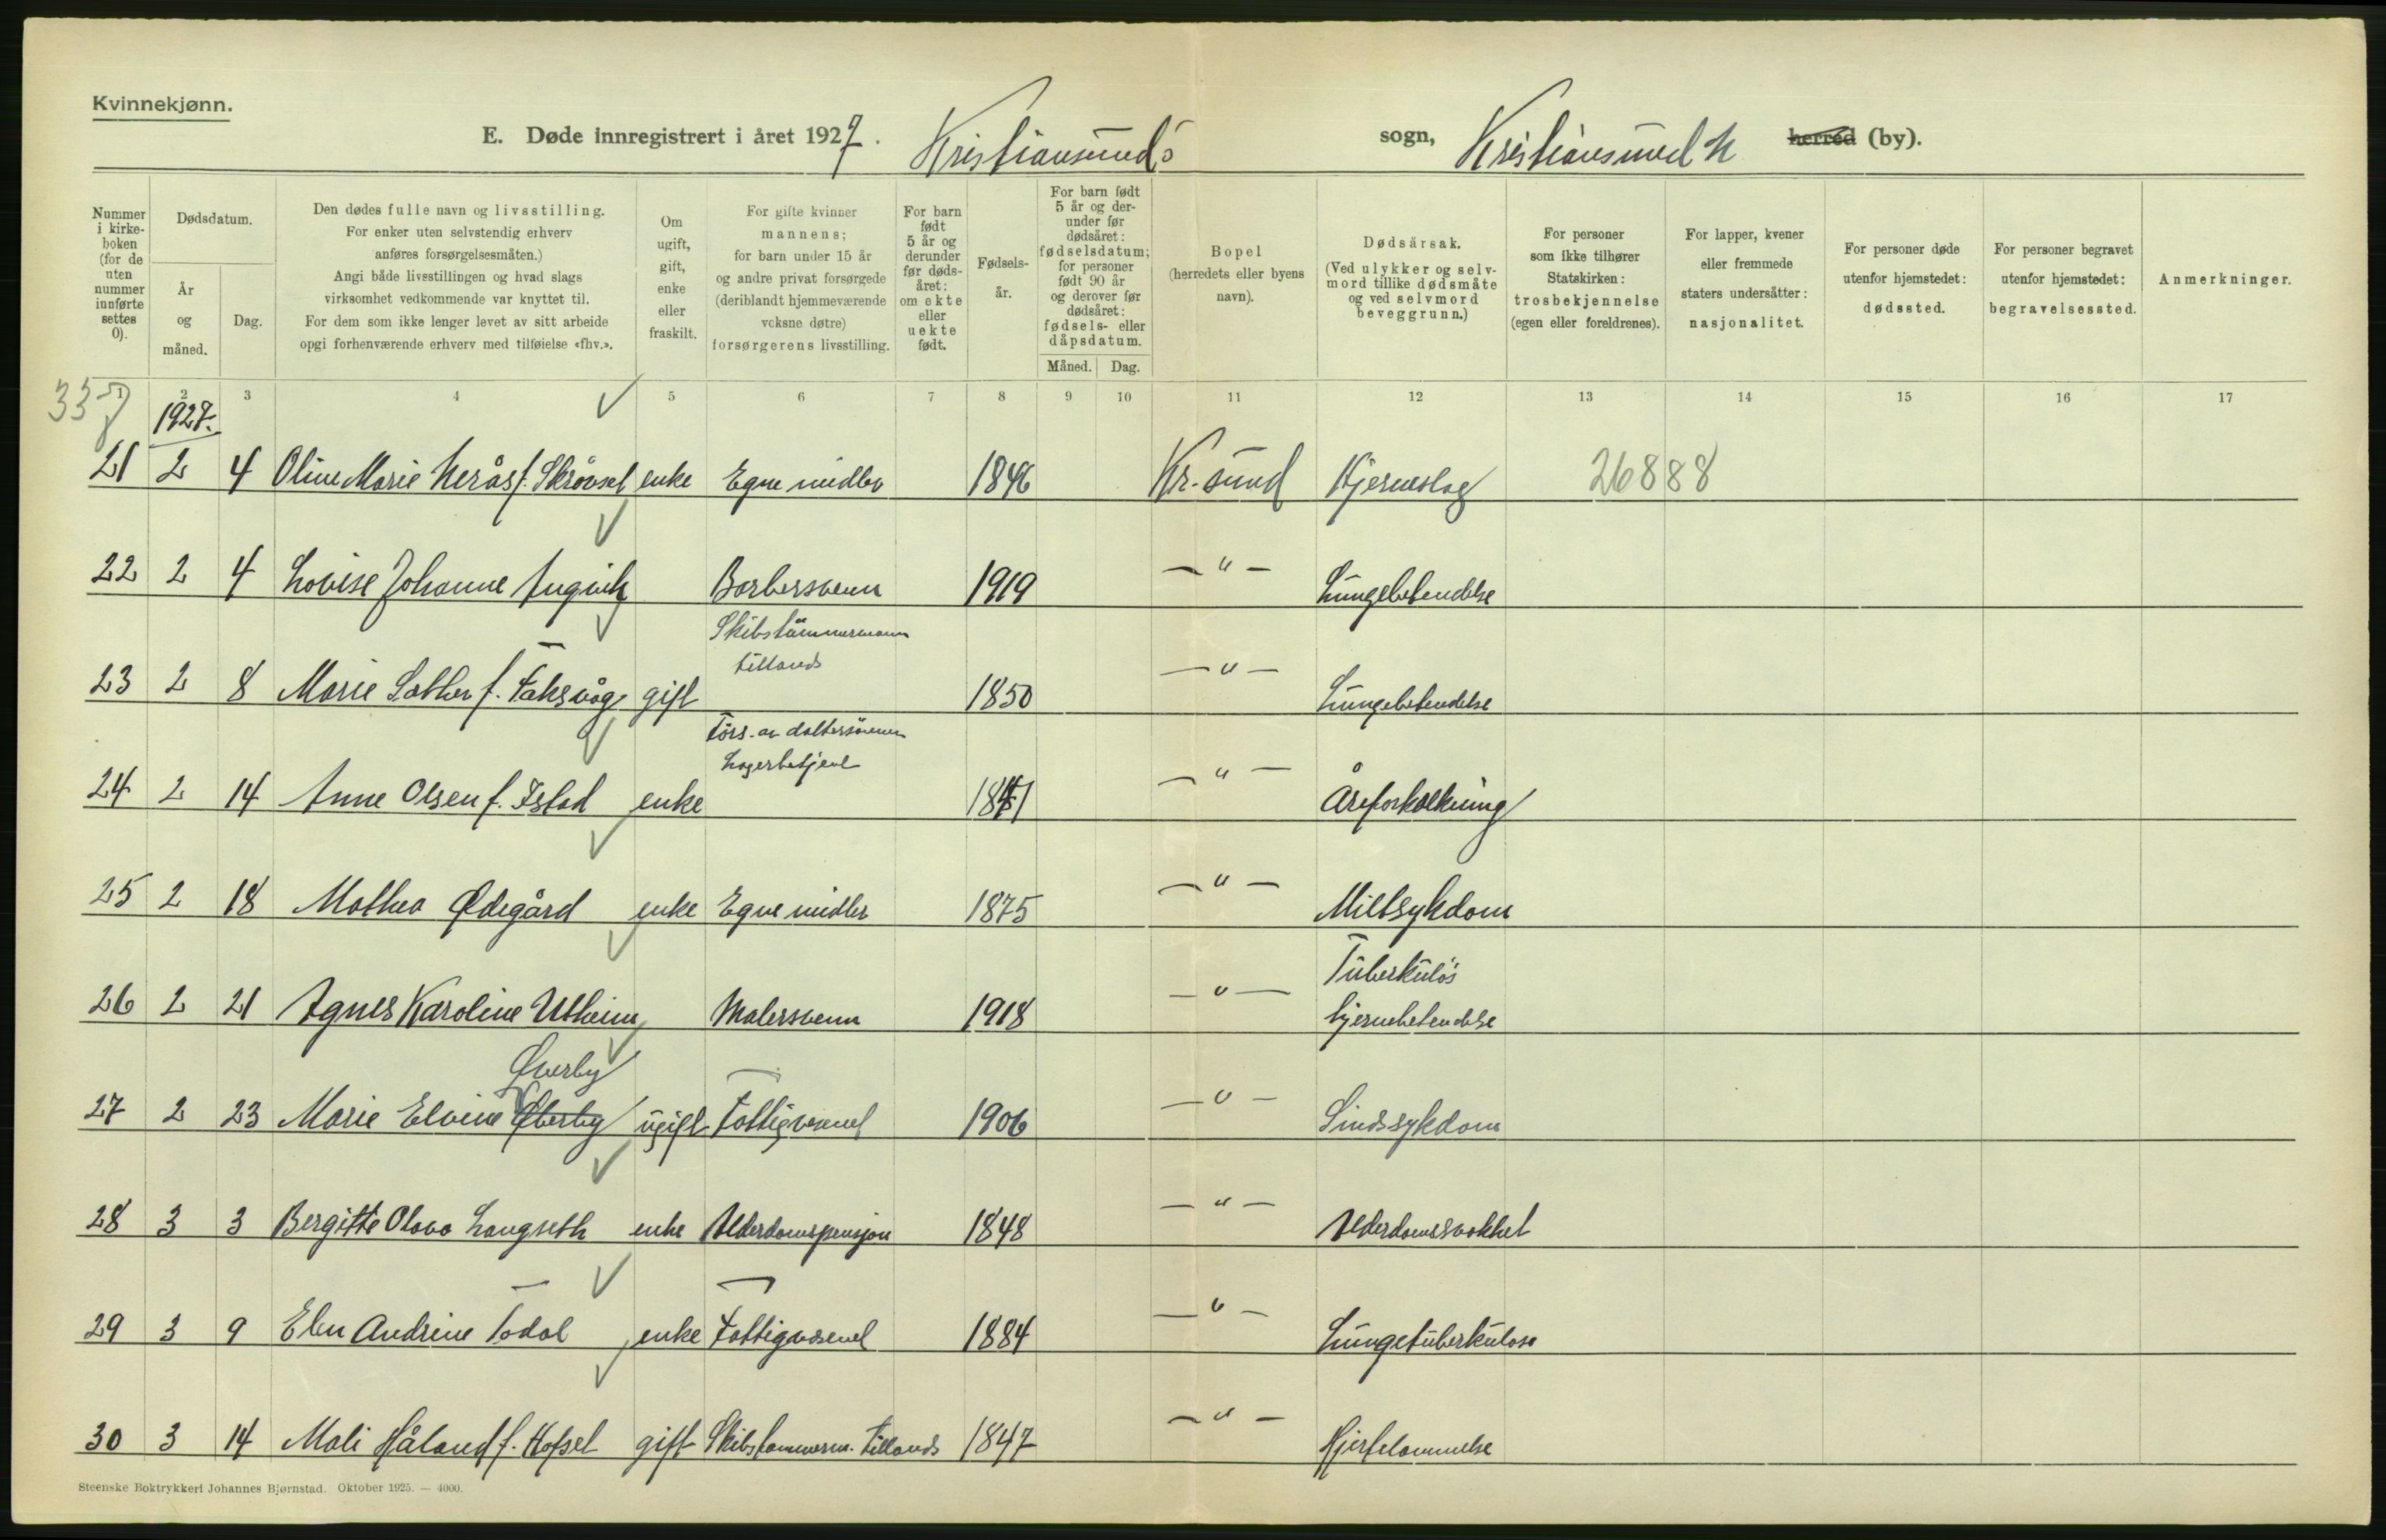 Kvinnekjønn.
E. Døde innregistrert i året 1927. Kristiansunds sogn, Kristiansund N herred (by).
Nummer i kirkeboken (for de uten nummer innførte settes 0).
Dødsdatum.
År og måned.
Dag.
Den dødes fulle navn og livsstilling.
For enker uten selvstendig erhverv
anføres forsørgelsesmåten.)
Angi både livsstillingen og hvad slags
virksomhet vedkommende var knyttet til.
For dem som ikke lenger levet av sitt arbeide
opgi forhenværende erhverv med tilføielse «fhv.».
Om ugift, gift, enke eller fraskilt.
For gifte kvinner
mannens;
for barn under 15 år
og andre privat forsørgede
(deriblandt hjemmeværende
voksne døtre)
forsørgerens livsstilling.
For barn født 5 år og derunder før dødsåret: om ekte eller uekte født.
Fødselsår.
For barn født 5 år og derunder før dødsåret: fødselsdatum; for personer født 90 år og derover før dødsåret: fødsels- eller dåpsdatum.
Måned. Dag.
Bopel
(herredets eller byens
navn).
Dødsårsak.
(Ved ulykker og selvmord tillike dødsmåte og ved selvmord beveggrunn.)
For personer
som ikke tilhører
Statskirken:
trosbekjennelse
(egen eller foreldrenes).
For lapper, kvener
eller fremmede
staters undersåtter:
nasjonalitet.
For personer døde
utenfor hjemstedet:
dødssted.
For personer begravet
utenfor hjemstedet:
begravelsessted.
Anmerkninger.
1 2 3 4 5 6 7 8 9 10 11 12 13 14 15 16 17
1927.
21 2 4 Oline Marie Nerås f. Skrøvset enke Egne midler 1846 Kr.sund Hjerneslag 26888
22 2 4 Lovise Johanne Angvik Barbersvenn 1919 —"— Lungebetendelse
Skibstømmermann
tillands
23 2 8 Marie Sæther f. Faksvåg gift 1850 —"— Lungebetendelse
Fors. av dattersønnen
Lagerbetjent
24 2 14 Anne Olsen f. Istad enke 1841 —"— Åreforkalkning
25 2 18 Mathea Ødegård enke Egne midler 1875 —"— Miltsykdom
Tuberkuløs
26 2 21 Agnes Karoline Utheim Malersvenn 1918 —"— hjernebetendelse
Øverby
27 2 23 Marie Elvine Øverby ugift Fattigvesenet 1906 —"— Sindssykdom
28 3 3 Bergitte Olava Langseth enke Alderdomspensjon 1848 —"— Alderdomssvakhet
29 3 9 Elen Andrine Todal enke Fattigvesenet 1884 —"— Lungetuberkulose
30 3 14 Mali Håland f. Hofset gift Skibstømmerm. tillands 1847 —"— Hjertelammelse
Steenske Boktrykkeri Johannes Bjørnstad. Oktober 1925. — 4000.